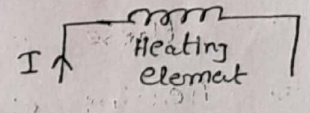 Heating
I element